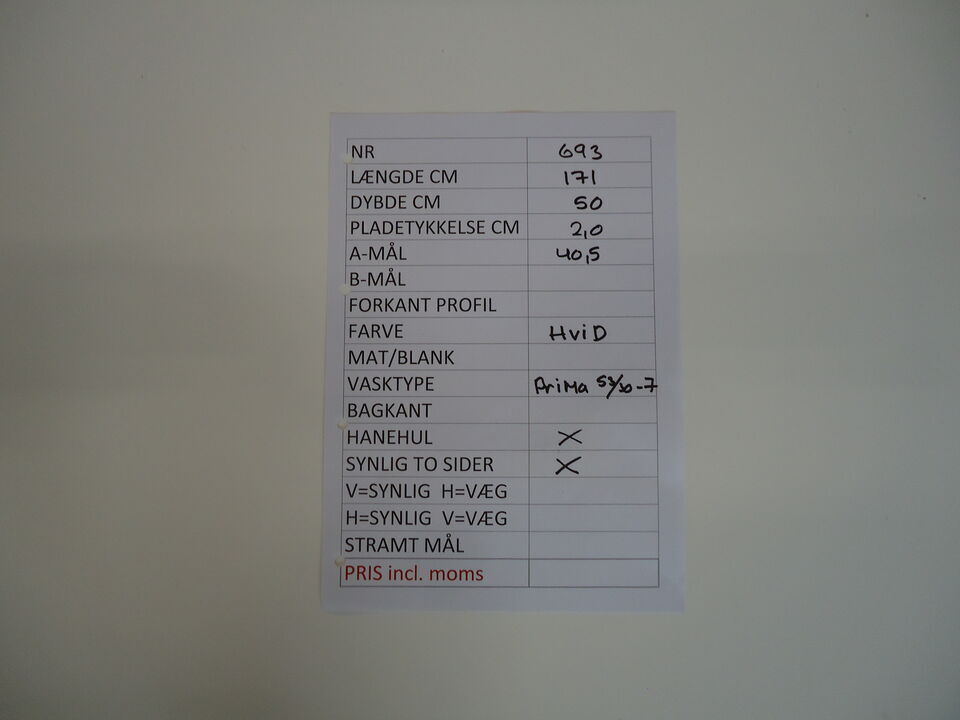 NR 693
LÆNGDE CM 171
DYBDE CM 50
PLADETYKKELSE CM 2,0
A-MÅL 40,5
B-MÅL
FORKANT PROFIL
FARVE HviD
MAT/BLANK
VASKTYPE PriMa
BAGKANT
HANEHUL X
SYNLIG TO SIDER X
V=SYNLIG H=VÆG
H=SYNLIG V=VÆG
STRAMT MÅL
PRIS incl. moms